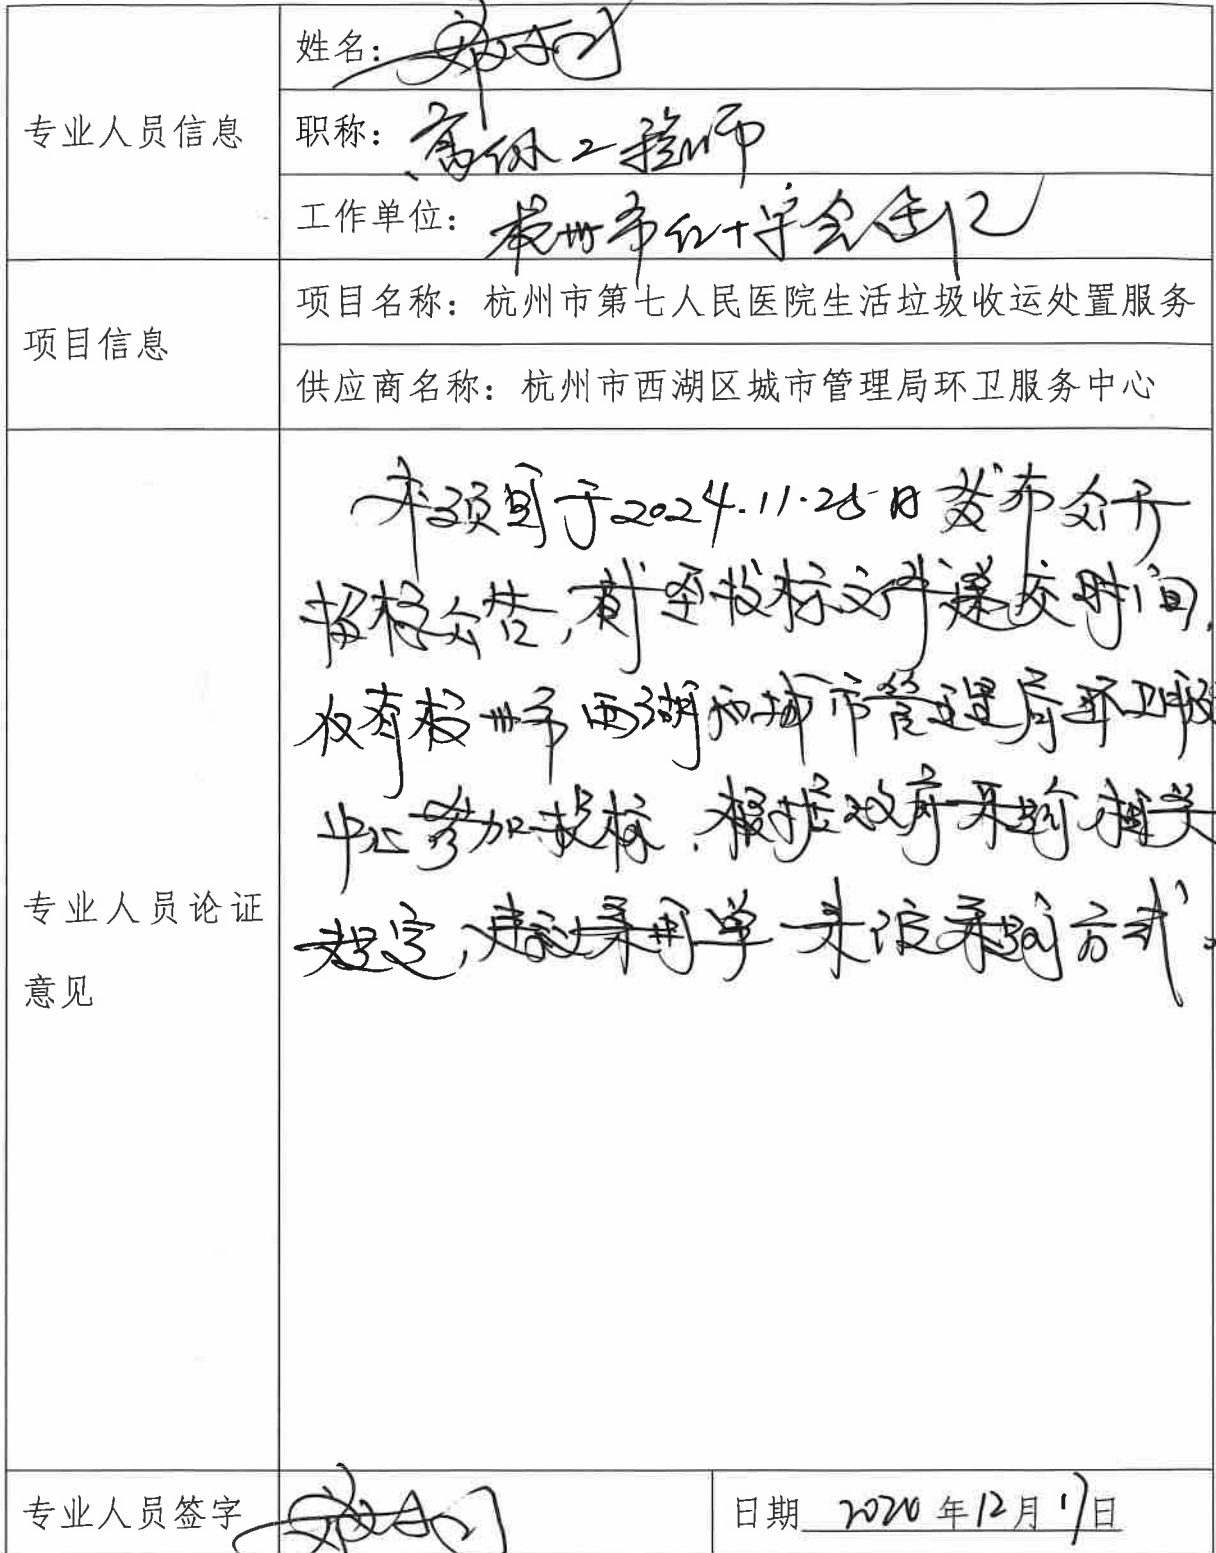 专业人员信息
姓名：
职称：高级工程师
工作单位：杭州市红十字会医院
项目信息
项目名称：杭州市第七人民医院生活垃圾收运处置服务
供应商名称：杭州市西湖区城市管理局环卫服务中心
专业人员论证
意见
本项目于2024.11.25日发布公开
招标公告，截至投标文件递交时间，
仅有杭州市西湖区城市管理局环卫服务
中心参加投标，根据政府采购相关
规定，建议采用单一来源采购方式。
专业人员签字
日期 年12月17日